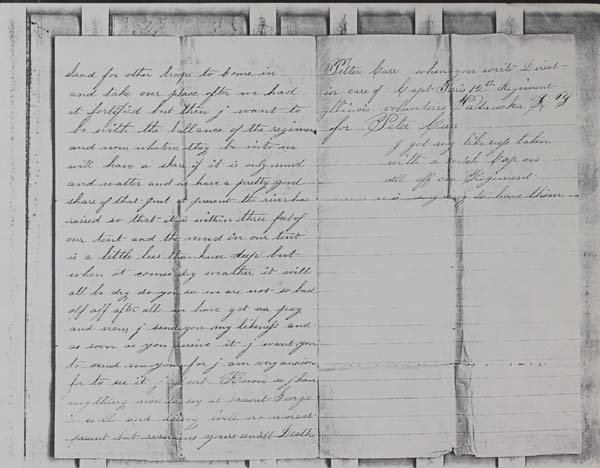 stand for other troops to Come in
and take our place after we had
it fortified but then j want to
be with the ballance of the regimen
and now whatever they be into we
will have a share if it is only mud
and watter and we have a pretty good
share of that Just at present the river has
raised so that it is within three feet of
our tent and the mud in our tent
is a little less than knee deep but
when it comes dry weather it will
all be dry so you see we are not so bad
off aff after all we have got our pay
and now j send you my likeness and
as soon as you receive it j want you
to send me yours for j am very anxious
for to see it j dont Know as j have
any thing more to say at present George
is well and doing well no more at
present but remains yours untill Death
Peter Carr when you write Direct
in care of Capt 12th Regiment
Illinois volunteres Paducka Ky
for Peter Carr
j got my likeness taken
with a Cap on
all off our Regiment
is to have them